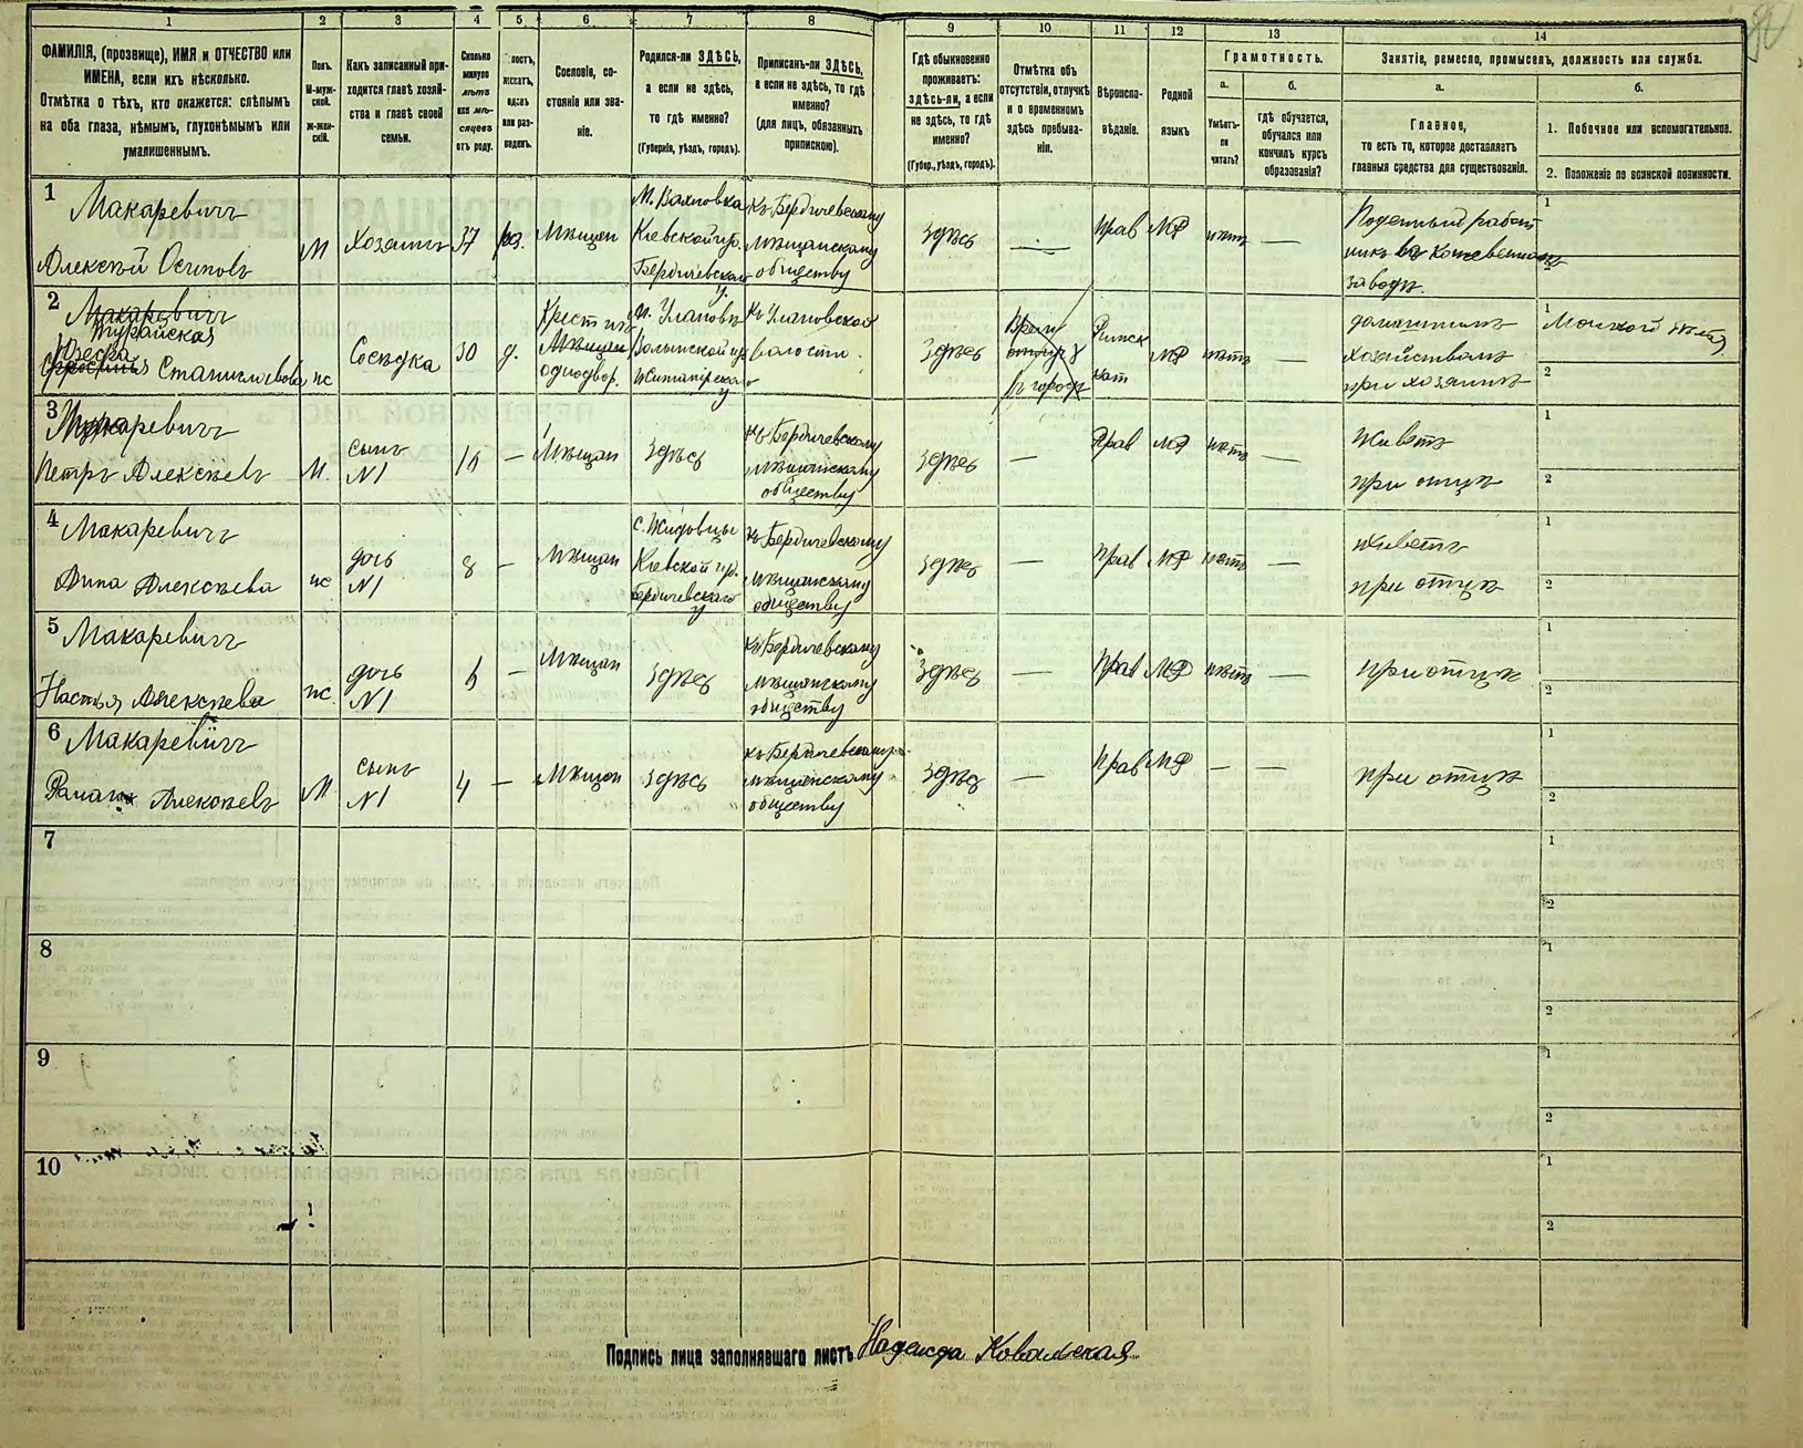 1 2 3 4 5 6 7 8 9 10 11 12 13 14
ФАМИЛІЯ, (прозвище), ИМЯ и ОТЧЕСТВО или
ИМЕНА, если ихъ нѣсколько.
Отмѣтка о тѣхъ, кто окажется: слѣпымъ
на оба глаза, нѣмымъ, глухонѣмымъ или
умалишеннымъ.
Полъ.
М-муж-
ской.
Ж-жен-
скій.
Какъ записанный при-
ходится главѣ хозяй-
ства и главѣ своей
семьи.
Сколько
минуло
лѣтъ
или мѣ-
сяцевъ
отъ роду.
лостъ,
женатъ,
вдовъ
или раз-
веденъ.
Сословіе, со-
стояніе или зва-
ніе.
Родился-ли ЗДѢСЬ,
а если не здѣсь,
то гдѣ именно?
(Губернія, уѣздъ, городъ).
Приписанъ-ли ЗДѢСЬ,
а если не здѣсь, то гдѣ
именно?
(для лицъ, обязанныхъ
припискою).
Гдѣ обыкновенно
проживаетъ:
ЗДѢСЬ-ли, а если
не здѣсь, то гдѣ
именно?
(Губер., уѣздъ, городъ).
Отмѣтка объ
отсутствіи, отлучкѣ
и о временномъ
здѣсь пребыва-
ніи.
Вѣроиспо-
вѣданіе.
Родной
языкъ.
Грамотность.
а.
Умѣетъ-
ли
читать?
б.
гдѣ обучается,
обучался или
кончилъ курсъ
образованія?
Занятіе, ремесло, промыселъ, должность или служба.
а.
Главное,
то есть то, которое доставляетъ
главныя средства для существованія.
б.
1. Побочное или вспомогательное.
2. Положеніе по воинской повинности.
1 Макаревичъ
Алексѣй Осиповъ
М
Хозяинъ
37
раз.
Мѣщан
М. Вахновка
Кіевской губ.
Бердичевскаго
у.
Къ Бердичевскому
мѣщанскому
обществу
Здѣсь
—
Прав
МР
нѣтъ
—
Поденный работ
никъ въ кожевенномъ
заводѣ.
1
2
2 Макаревичъ
Турайская
Юзефа
Станиславова
ж
Сосѣдка
30
д.
Крест изъ
Мѣщан
однодвор.
м. Улановъ
Волынской гу
Житомірскаго
у
Къ Улановской
волости.
Здѣсь
въ городѣ
Римск
кат
МР
нѣтъ
домашнимъ
хозяйствомъ
при хозяинѣ
1
2
3 Макаревичъ
Петръ Алексѣевъ
М.
сынъ
N1
—
Мѣщан
Здѣсь
къ Бердичевскому
мѣщанскому
обществу
Здѣсь
—
Прав
МР
нѣтъ
—
Живетъ
при отцѣ
1
2
4 Макаревичъ
Анна Алексѣева
ж
дочь
N1
8
—
Мѣщан
с. Жидовцы
Кіевской губ.
Бердичевскаго
у
къ Бердичевскому
мѣщанскому
обществу
Здѣсь
—
Прав
МР
нѣтъ
—
живетъ
при отцѣ
1
2
5 Макаревичъ
Настья Алексѣева
ж
дочь
N1
6
—
Мѣщан
Здѣсь
къ Бердичевскому
мѣщанскому
обществу
Здѣсь
—
Прав
МР
нѣтъ
—
при отцѣ
1
2
6 Макаревичъ
Романъ Алексѣевъ
М
сынъ
N1
4
—
Мѣщан
Здѣсь
къ Бердичевскому
мѣщанскому
обществу
Здѣсь
—
Прав
МР
—
—
при отцѣ
1
2
7
1
2
8
1
2
9
1
2
10
1
2
Подпись лица заполнявшаго листъ Надежда Ковальская